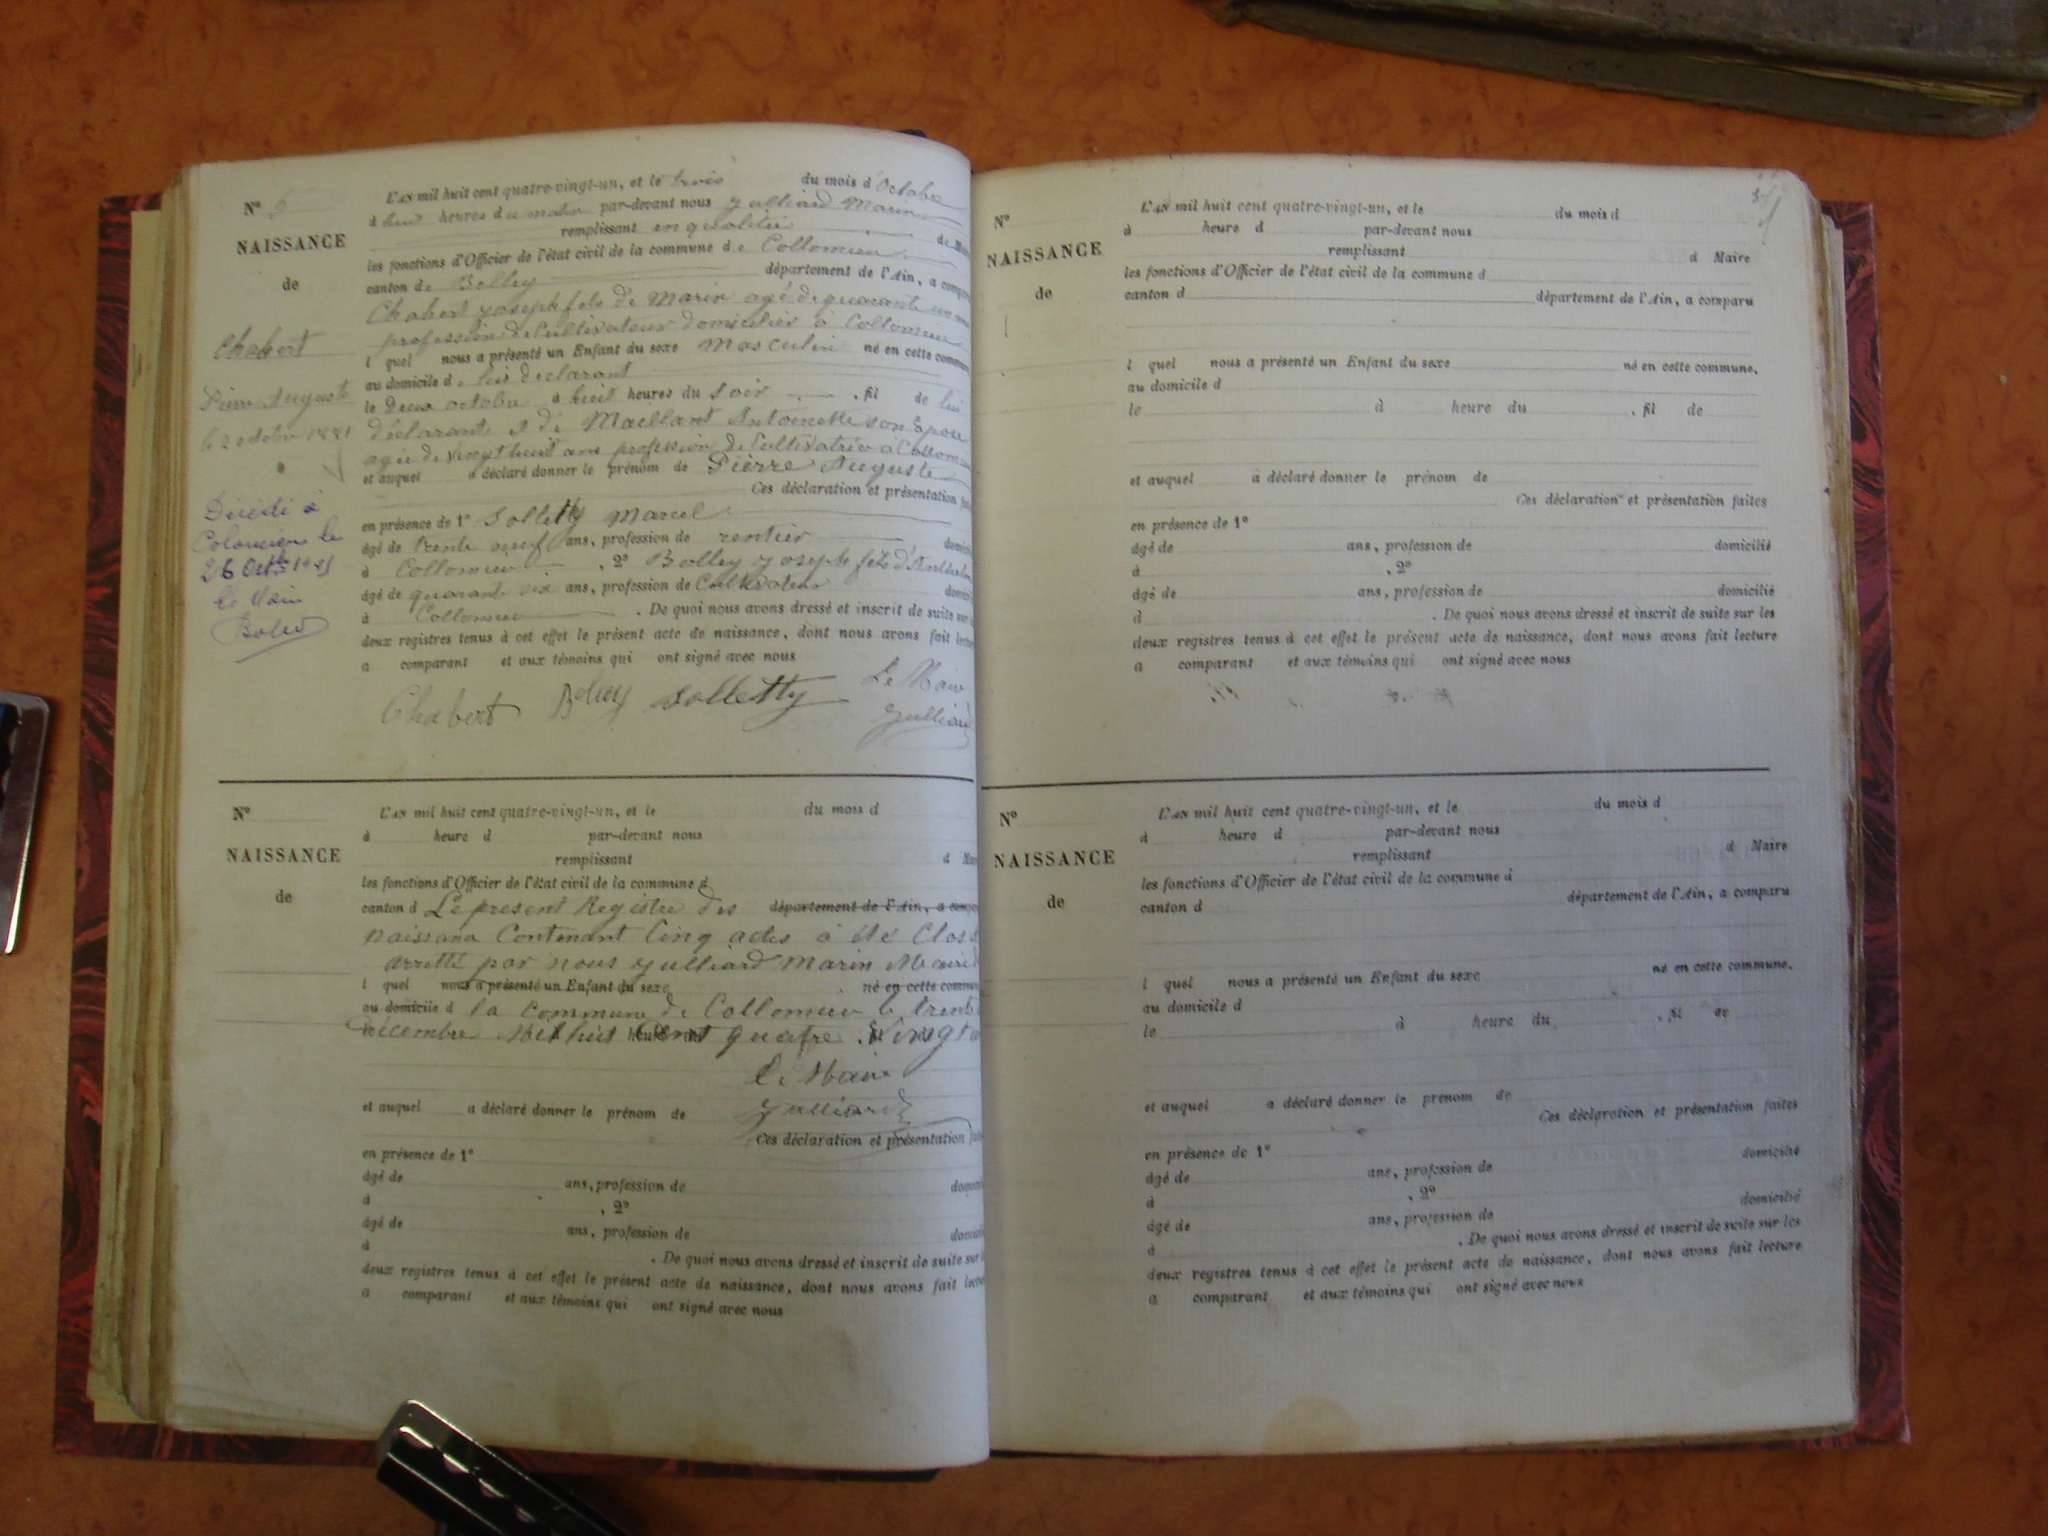 Nº 5
NAISSANCE
de
Chabert
Pierre Auguste
le 2 octobre 1881
Décédé à
Colomieu le
26 Octbre
le Maire
L'AN mil huit cent quatre-vingt-un, et le trois du mois d'Octobre
à huit heures du matin par-devant nous Julliard Marin
remplissant en qualité de Maire
les fonctions d'Officier de l'état civil de la commune de Collomieu
canton de Belley département de l'Ain, a comparu
Chabert Joseph fils de Marin agé de quarante un
profession de Cultivateur domicilier à Collomieu
l quel nous a présenté un Enfant du sexe Masculin né en cette commune
au domicile de lui declarant
le Deux octobre à huit heures du Soir , fil de lui
déclarant et de Maellant Antoinette son épouse
agée de vingt huit ans profession de Cultivatrice à Collomieu
et auquel a déclaré donner le prénom de Pierre Auguste
Ces déclaration et présentation faites
en présence de 1º Solletty Marcel
âgé de trente neuf ans, profession de rentier domicilié
à Collomieu , 2º Bolley Joseph fils d'
âgé de quarante six ans, profession de Cultivateur domicilié
à Collomieu . De quoi nous avons dressé et inscrit de suite sur les
deux registres tenus à cet effet le présent acte de naissance, dont nous avons fait lecture
a comparant et aux témoins qui ont signé avec nous
Chabert Bolley Solletty Le Maire
Julliard
Nº
NAISSANCE
de
L'AN mil huit cent quatre-vingt-un, et le du mois d
à heure d par-devant nous
remplissant d Maire
les fonctions d'Officier de l'état civil de la commune d
canton d Le présent Registre des département de l'Ain, a comparu
naissance Contenant Cinq actes à été Clos
arretté par nous Julliard Marin Maire d
l quel nous a présenté un Enfant du sexe né en cette commune
au domicile d la Commune de Collomieu le trente
Décembre Mil huit Cent quatre Vingt un
Le Maire
et auquel a déclaré donner le prénom de Julliard
Ces déclaration et présentation faites
en présence de 1º
âgé de ans, profession de domicilié
à , 2º
âgé de ans, profession de domicilié
à . De quoi nous avons dressé et inscrit de suite sur les
deux registres tenus à cet effet le présent acte de naissance, dont nous avons fait lecture
a comparant et aux témoins qui ont signé avec nous
Nº
NAISSANCE
de
L'AN mil huit cent quatre-vingt-un, et le du mois d
à heure d par-devant nous
remplissant d Maire
les fonctions d'Officier de l'état civil de la commune d
canton d département de l'Ain, a comparu
l quel nous a présenté un Enfant du sexe né en cette commune.
au domicile d
le à heure du , fil de
et auquel a déclaré donner le prénom de
Ces déclaration et présentation faites
en présence de 1º
âgé de ans, profession de domicilié
à , 2º
âgé de ans, profession de domicilié
à . De quoi nous avons dressé et inscrit de suite sur les
deux registres tenus à cet effet le présent acte de naissance, dont nous avons fait lecture
a comparant et aux témoins qui ont signé avec nous
Nº
NAISSANCE
de
L'AN mil huit cent quatre-vingt-un, et le du mois d
à heure d par-devant nous
remplissant d Maire
les fonctions d'Officier de l'état civil de la commune d
canton d département de l'Ain, a comparu
l quel nous a présenté un Enfant du sexe né en cette commune.
au domicile d
le à heure du , fil de
et auquel a déclaré donner le prénom de
Ces déclaration et présentation faites
en présence de 1º
âgé de ans, profession de domicilié
à , 2º
âgé de ans, profession de domicilié
à . De quoi nous avons dressé et inscrit de suite sur les
deux registres tenus à cet effet le présent acte de naissance, dont nous avons fait lecture
a comparant et aux témoins qui ont signé avec nous